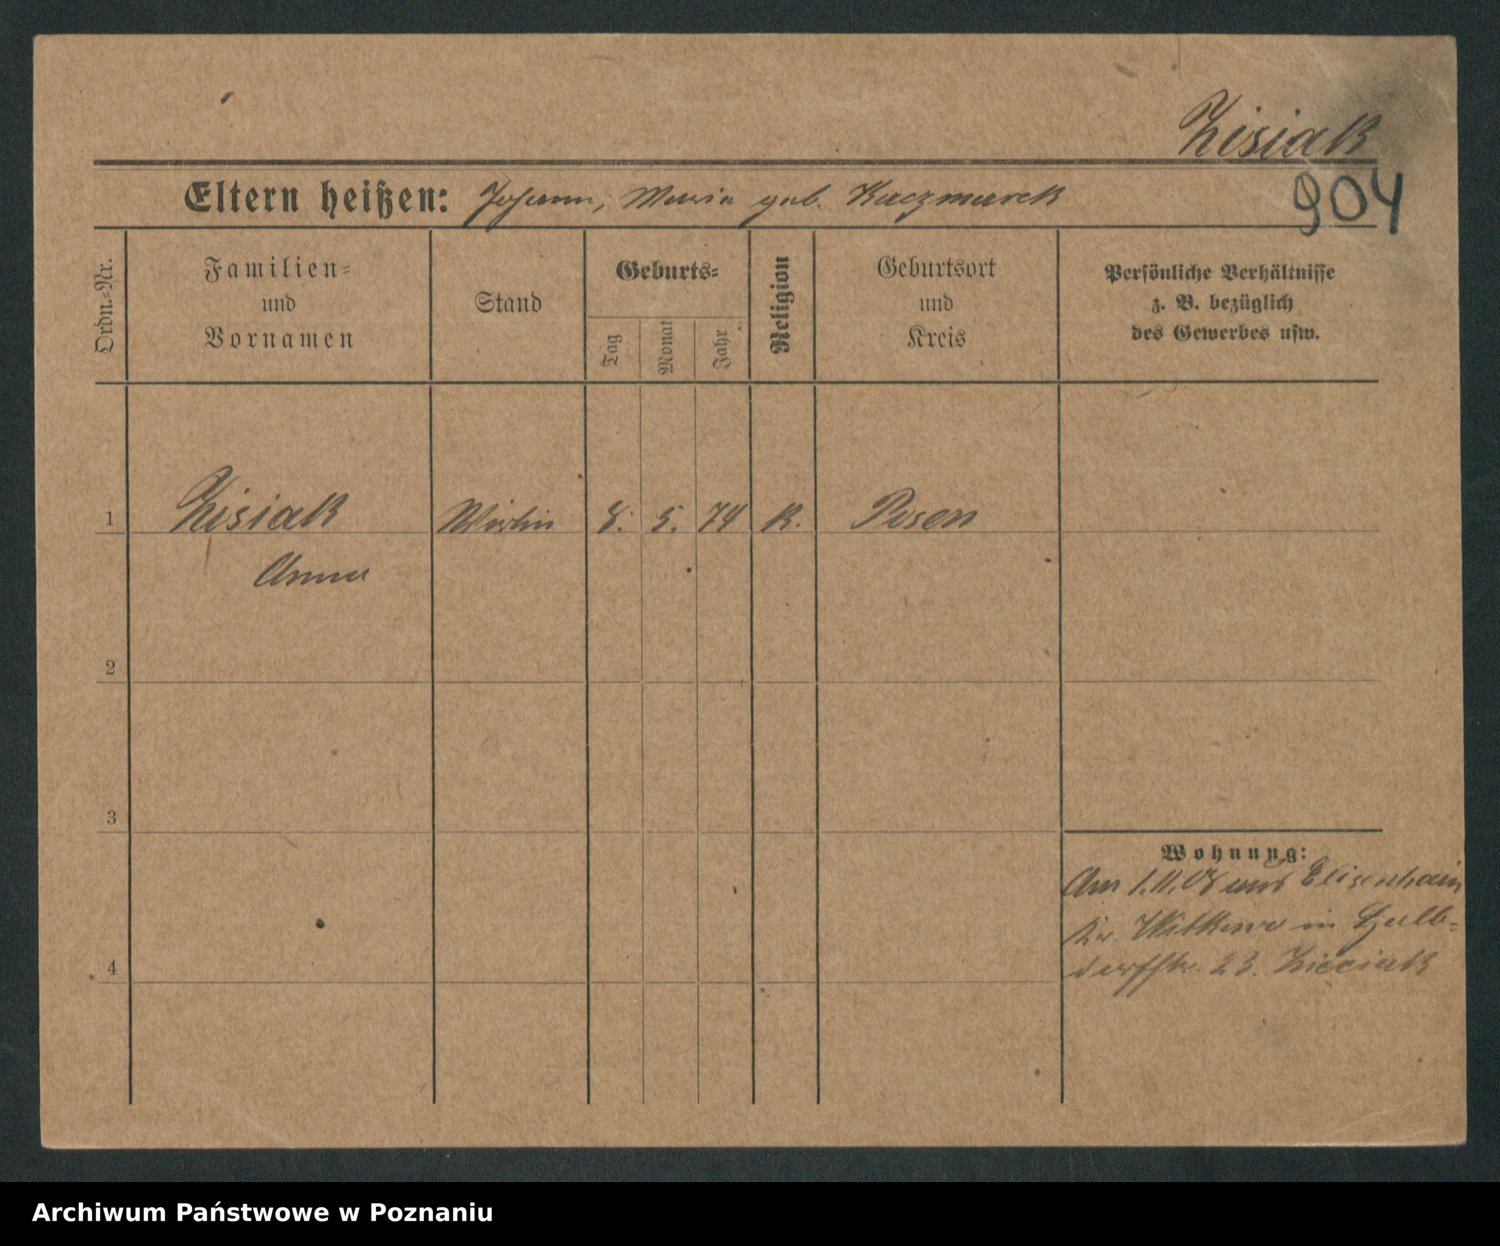 Zisiak
Eltern heißen: Johann, Maria geb. Kaczmarek
904
Ordn.-Nr.
Familien-
und
Vornamen
Stand
Geburts-
Tag
Monat
Jahr
Religion
Geburtsort
und
Kreis
Persönliche Verhältnisse
z. B. bezüglich
des Gewerbes usw.
1 Zisiak 8. 5. 74 K. Posen
Anna
2
3
Wohnung:
Am 1.11.08 Elisenhain
Kr. Witkowo in
23.
4
Archiwum Państwowe w Poznaniu